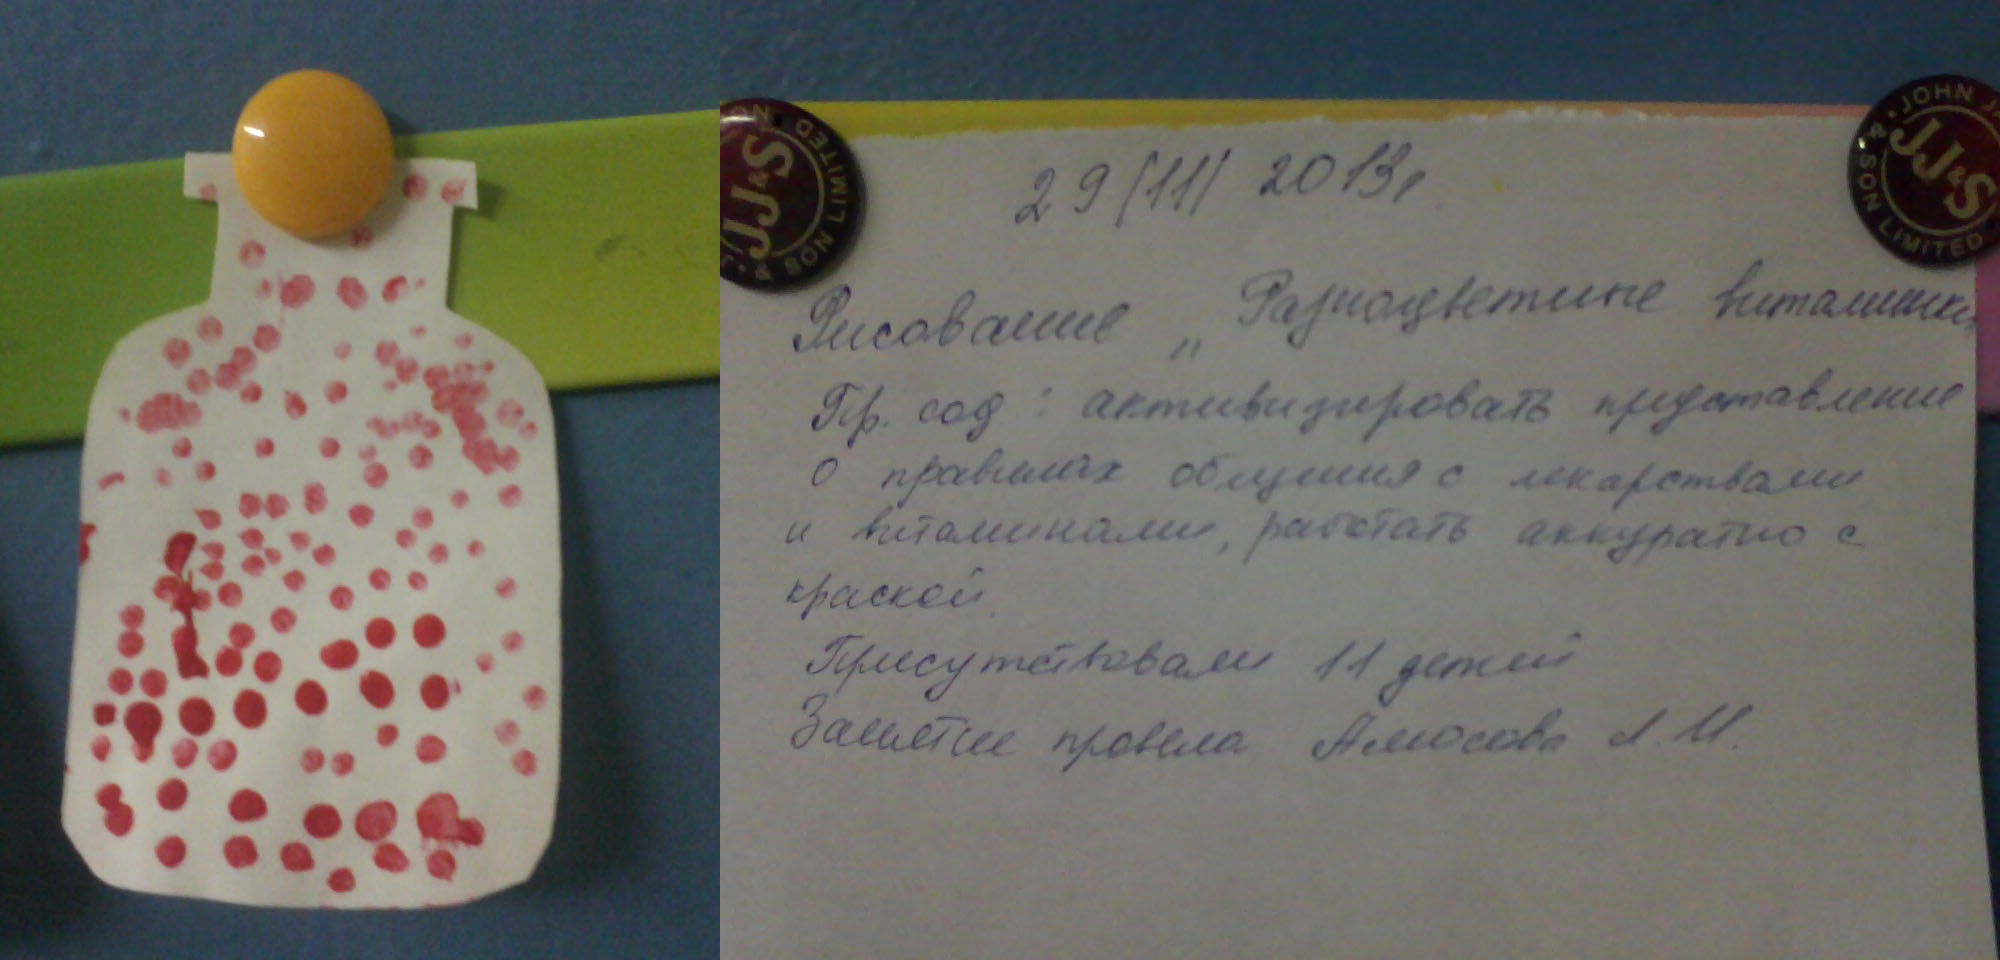 29 (11) 2013г.
Рисование „Разноцветные витаминки"
Пр. сод: активизировать представление
о правилах общения с лекарствами
и витаминами, работать аккуратно с
краской.
Присутствовали 11 детей
Занятие провела Амосова Л. И.
JJ&S
& SON LIMITED
JOHN
JJ&S
& SON LIMITED